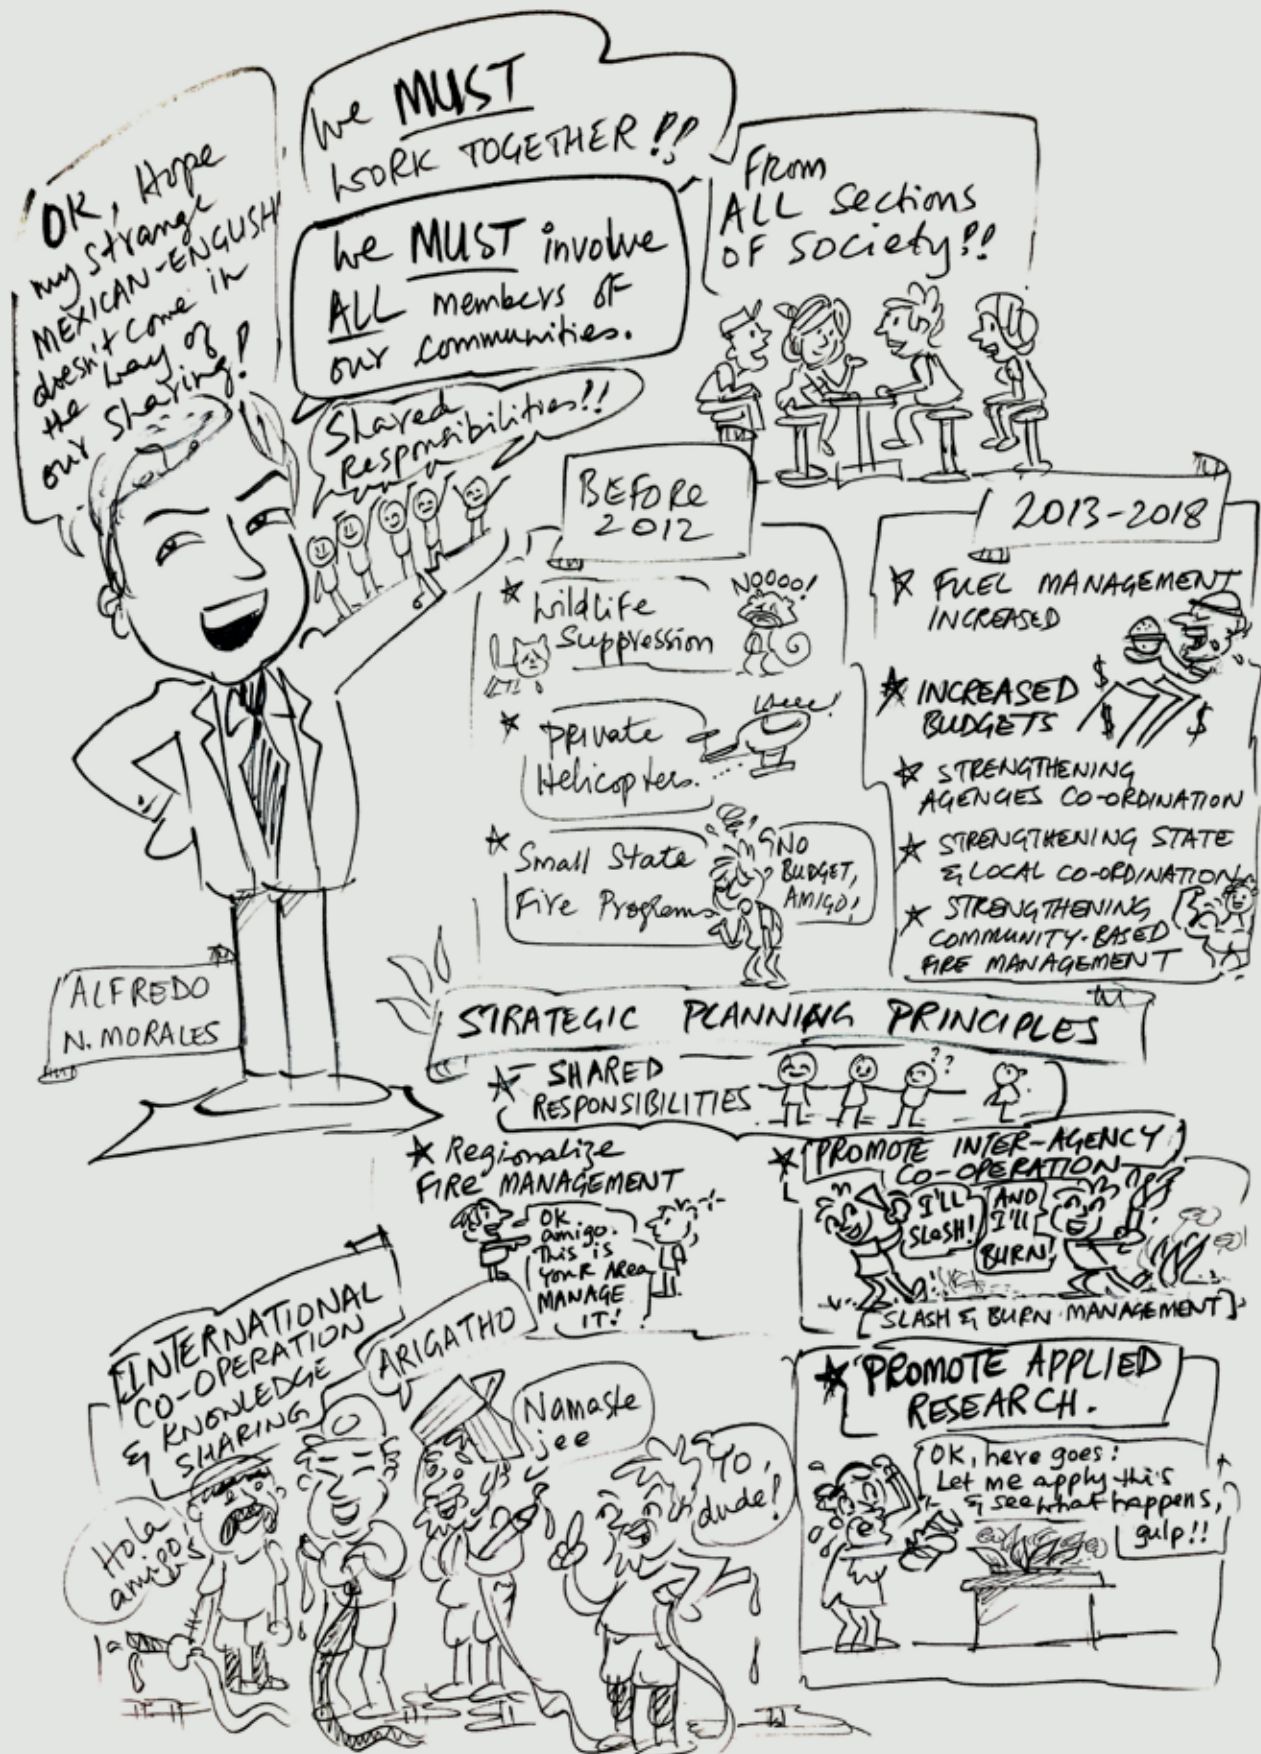 OK, Hope
my strange
MEXICAN-ENGLISH
doesn't come in
the way of
our sharing!
We MUST
WORK TOGETHER!!
We MUST involve
ALL members of
our communities.
From
ALL Sections
OF Society!!
Shared
Responsibilities!!
ALFREDO
N. MORALES
BEFORE
2012
Wildlife
Suppression
NOOOO!
Private
Helicopters.
Weee!
Small State
Fire Programs
NO
BUDGET,
AMIGO!
2013-2018
FUEL MANAGEMENT
INCREASED
INCREASED
BUDGETS
$
$
$
STRENGTHENING
AGENCIES CO-ORDINATION
STRENGTHENING STATE
& LOCAL CO-ORDINATION
STRENGTHENING
COMMUNITY-BASED
FIRE MANAGEMENT
STRATEGIC PLANNING PRINCIPLES
SHARED
RESPONSIBILITIES
??
Regionalize
FIRE MANAGEMENT
OK
amigo.
This is
YOUR AREA
MANAGE
IT!
PROMOTE INTER-AGENCY
CO-OPERATION
I'LL
SLASH!
AND
I'LL
BURN!
SLASH & BURN MANAGEMENT
INTERNATIONAL
CO-OPERATION
& KNOWLEDGE
SHARING
Hola
amigo!
ARIGATHO
Namaste
jee
Yo,
dude!
PROMOTE APPLIED
RESEARCH.
OK, here goes:
Let me apply this
& see what happens,
gulp!!